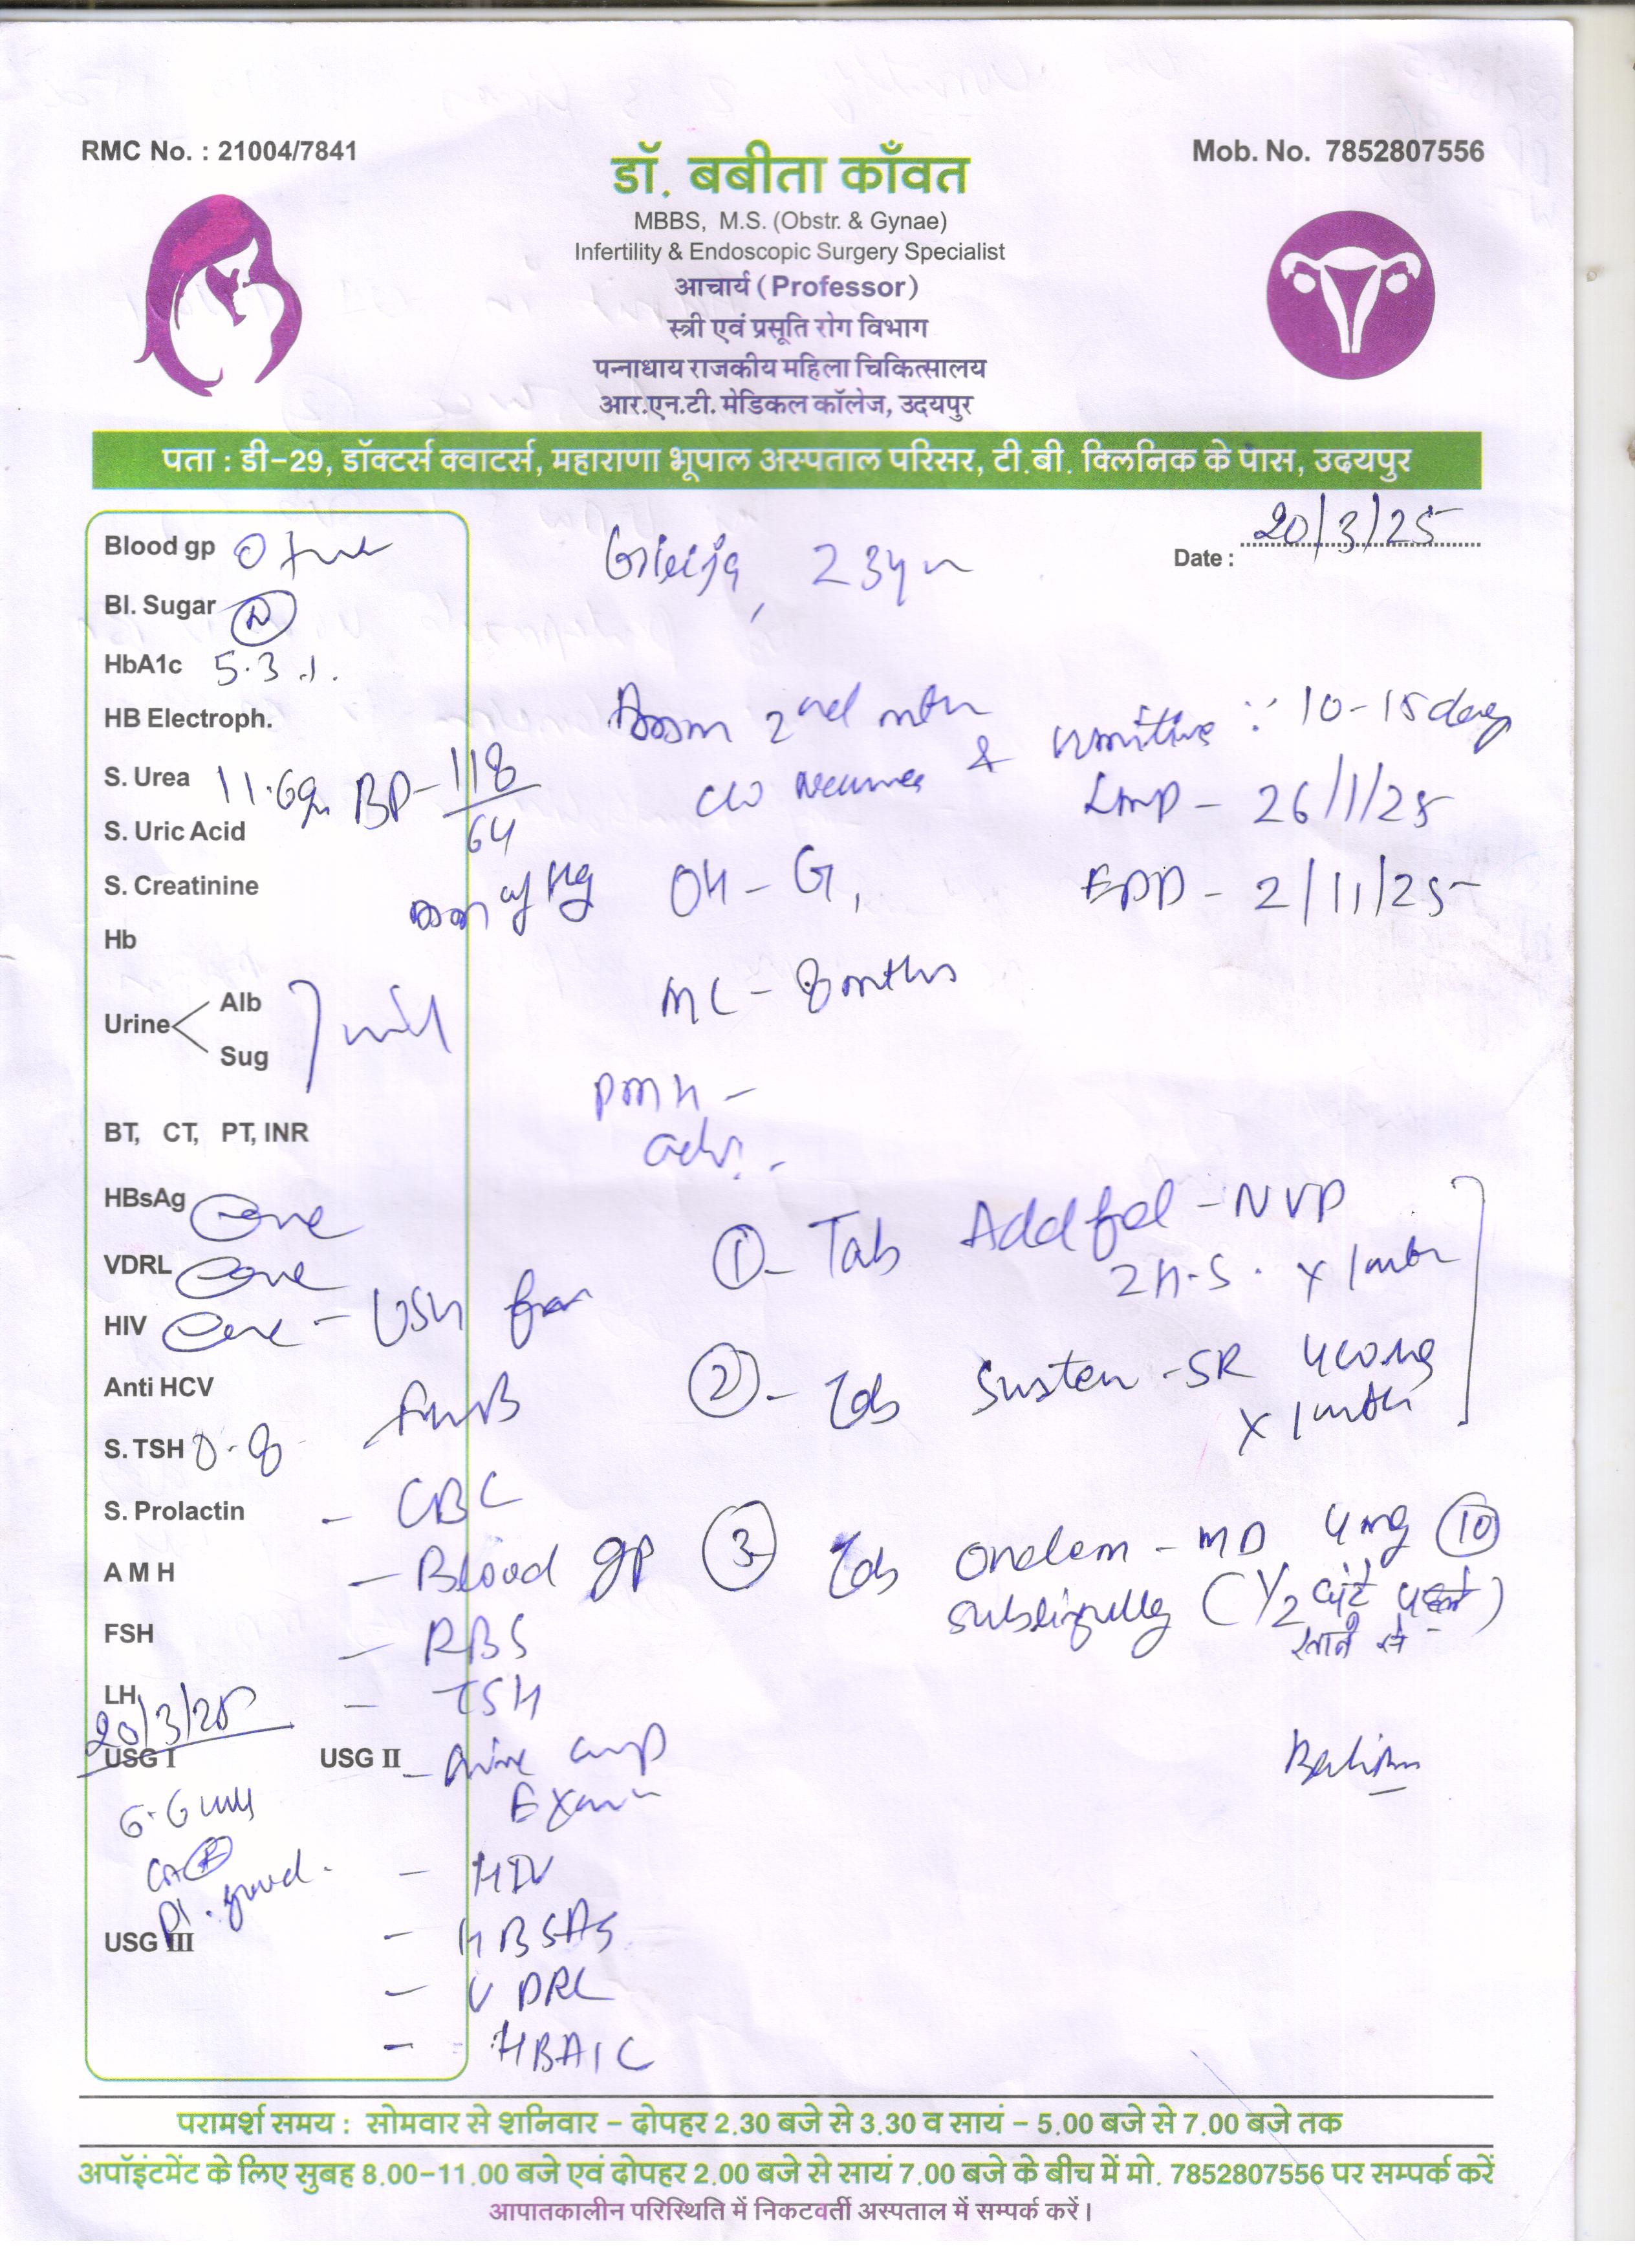 RMC No. : 21004/7841
Mob. No. 7852807556
डॉ. बबीता काँवत
MBBS, M.S. (Obstr. & Gynae)
Infertility & Endoscopic Surgery Specialist
आचार्य (Professor)
स्त्री एवं प्रसूति रोग विभाग
पन्नाधाय राजकीय महिला चिकित्सालय
आर.एन.टी. मेडिकल कॉलेज, उदयपुर
पता : डी-29, डॉक्टर्स क्वाटर्स, महाराणा भूपाल अस्पताल परिसर, टी.बी. क्लिनिक के पास, उदयपुर
Date : 20/3/25
23yr
Blood gp O +ve
Bl. Sugar (N)
HbA1c 5.3 %
HB Electroph.
S. Urea 11.6gm
S. Uric Acid
S. Creatinine
Hb
Urine
Alb
Sug
nil
BT, CT, PT, INR
HBsAg -ve
VDRL -ve
HIV -ve
Anti HCV
S. TSH 0.8
S. Prolactin
A M H
FSH
LH
20/3/25
USG I
USG II
6.6 wks
Pl. good.
USG III
BP - 118/64
mm of Hg
2nd mth
c/o & vomiting 10-15 days
LMP - 26/1/25
OH - G1
EDD - 2/11/25
MC - 8 months
PMH -
adv. -
1 - Tab Addfol - NVP
2 H.S. x 1 mth
2 - Tab Susten - SR 400mg
x 1 mth
3 Tab Ondem - MD 4mg 10
sublingually (1/2 घंटे पहले
खाने से)
- USG for
- CBC
- Blood gp
- RBS
- TSH
- Urine comp
Exam
- HIV
- HBSAg
- VDRL
- HBA1C
परामर्श समय : सोमवार से शनिवार - दोपहर 2.30 बजे से 3.30 व सायं - 5.00 बजे से 7.00 बजे तक
अपॉइंटमेंट के लिए सुबह 8.00-11.00 बजे एवं दोपहर 2.00 बजे से सायं 7.00 बजे के बीच में मो. 7852807556 पर सम्पर्क करें
आपातकालीन परिस्थिति में निकटवर्ती अस्पताल में सम्पर्क करें।